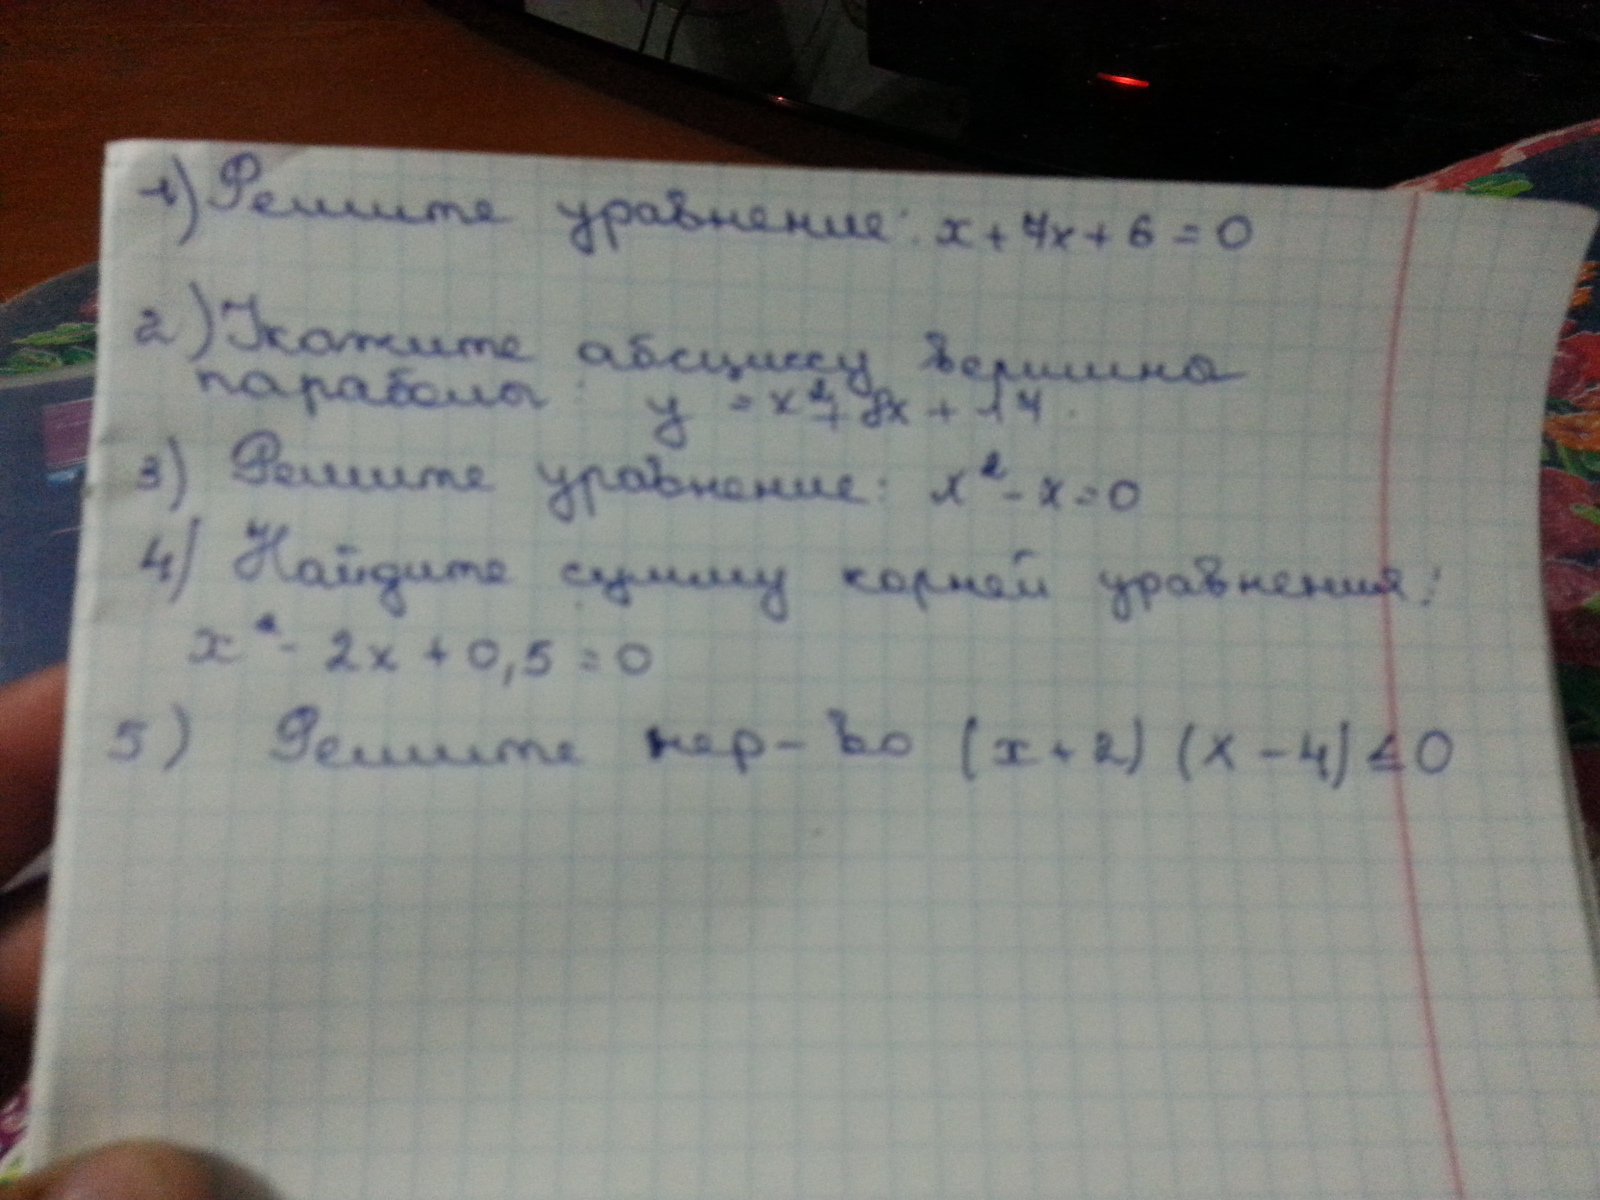 1) Решите уравнение: x + 7x + 6 = 0
2) Укажите абсциссу вершина
параболы: y = x² + 8x + 14.
3) Решите уравнение: x² - x = 0
4) Найдите сумму корней уравнения:
x² - 2x + 0,5 = 0
5) Решите нер-во (x + 2) (x - 4) ≤ 0